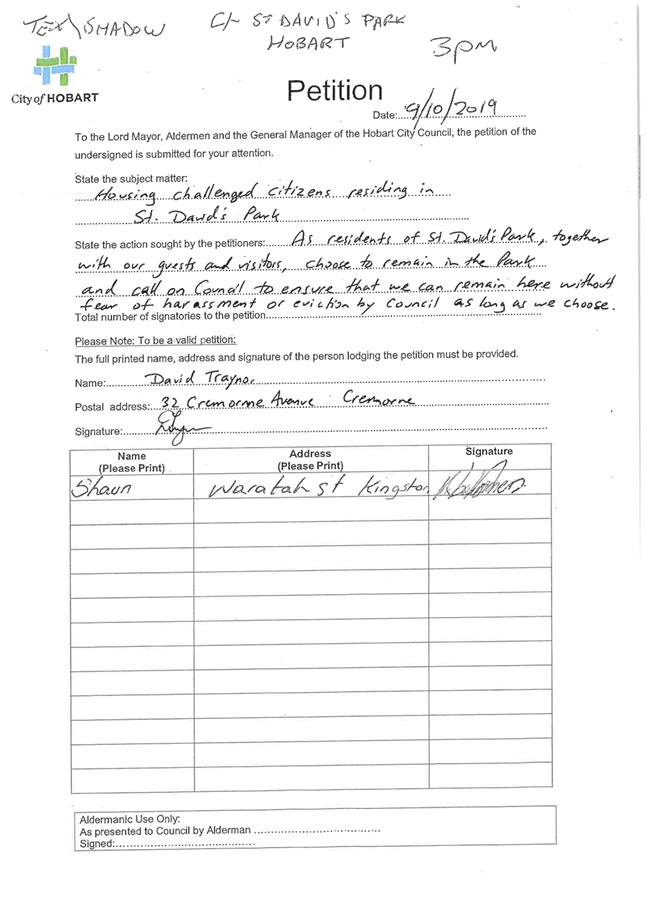 TEX SHADOW
C/- ST DAVID'S PARK
HOBART
3pm
City of HOBART
Petition
Date: 9/10/2019
To the Lord Mayor, Aldermen and the General Manager of the Hobart City Council, the petition of the
undersigned is submitted for your attention.
State the subject matter:
Housing challenged citizens residing in
St. David's Park
State the action sought by the petitioners: As residents of St. David's Park, together
with our guests and visitors, choose to remain in the Park
and call on Council to ensure that we can remain here without
fear of harassment or eviction by Council as long as we choose.
Total number of signatories to the petition
Please Note: To be a valid petition:
The full printed name, address and signature of the person lodging the petition must be provided.
Name: David Traynor
Postal address: 32 Cremorne Avenue Cremorne
Signature:
Name Address Signature
(Please Print) (Please Print)
Shaun Waratah st Kingston
Aldermanic Use Only:
As presented to Council by Alderman
Signed: